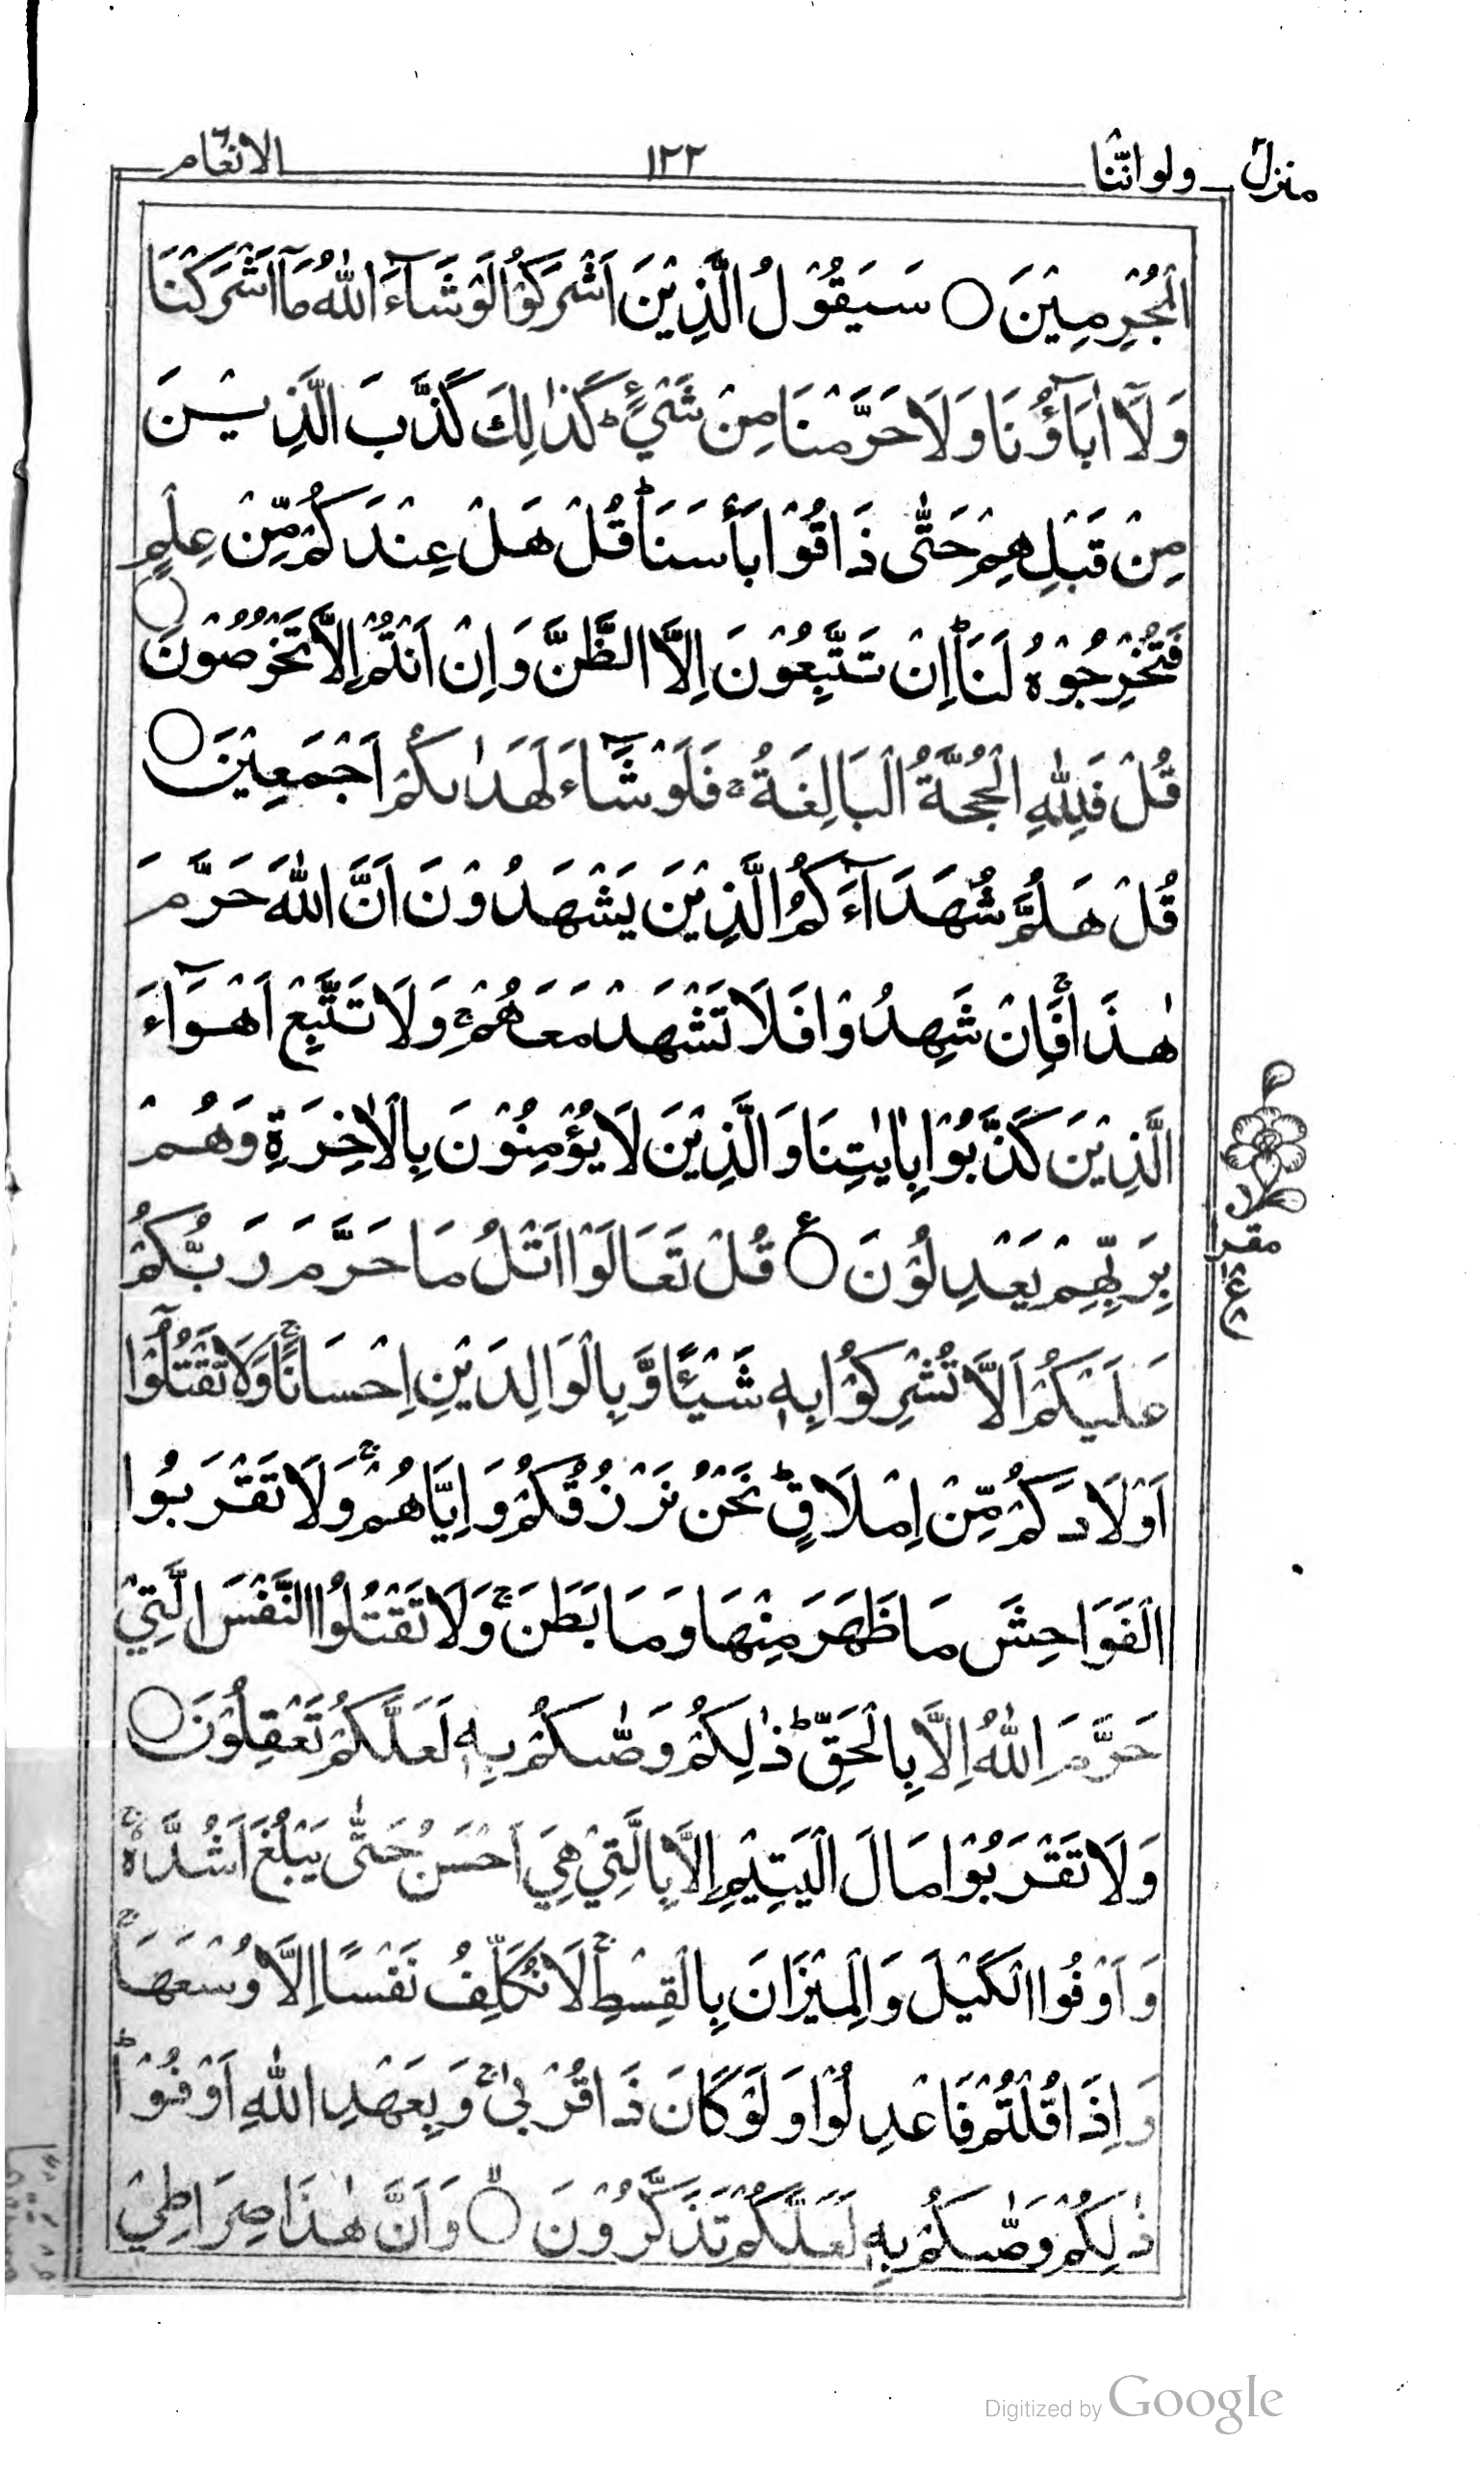 منزل ولواننا ١٢٢ الانعام
الْمُجْرِمِيْنَ ○ سَيَقُوْلُ الَّذِيْنَ اَشْرَكُوْا لَوْ شَآءَ اللّٰهُ مَآ اَشْرَكْنَا
وَلَآ اٰبَآؤُنَا وَلَا حَرَّمْنَا مِنْ شَيْءٍ ؕ كَذٰلِكَ كَذَّبَ الَّذِيْنَ
مِنْ قَبْلِهِمْ حَتّٰى ذَاقُوْا بَأْسَنَا ؕ قُلْ هَلْ عِنْدَكُمْ مِّنْ عِلْمٍ
فَتُخْرِجُوْهُ لَنَا ؕ اِنْ تَتَّبِعُوْنَ اِلَّا الظَّنَّ وَاِنْ اَنْتُمْ اِلَّا تَخْرُصُوْنَ ○
قُلْ فَلِلّٰهِ الْحُجَّةُ الْبَالِغَةُ ۚ فَلَوْ شَآءَ لَهَدٰىكُمْ اَجْمَعِيْنَ ○
قُلْ هَلُمَّ شُهَدَآءَكُمُ الَّذِيْنَ يَشْهَدُوْنَ اَنَّ اللّٰهَ حَرَّمَ
هٰذَا ۚ فَاِنْ شَهِدُوْا فَلَا تَشْهَدْ مَعَهُمْ ۚ وَلَا تَتَّبِعْ اَهْوَآءَ
الَّذِيْنَ كَذَّبُوْا بِاٰيٰتِنَا وَالَّذِيْنَ لَا يُؤْمِنُوْنَ بِالْاٰخِرَةِ وَهُمْ
بِرَبِّهِمْ يَعْدِلُوْنَ ○ قُلْ تَعَالَوْا اَتْلُ مَا حَرَّمَ رَبُّكُمْ
عَلَيْكُمْ اَلَّا تُشْرِكُوْا بِهٖ شَيْئًا وَّبِالْوَالِدَيْنِ اِحْسَانًا ۚ وَلَا تَقْتُلُوْٓا
اَوْلَادَكُمْ مِّنْ اِمْلَاقٍ ؕ نَحْنُ نَرْزُقُكُمْ وَاِيَّاهُمْ ۚ وَلَا تَقْرَبُوا
الْفَوَاحِشَ مَا ظَهَرَ مِنْهَا وَمَا بَطَنَ ۚ وَلَا تَقْتُلُوا النَّفْسَ الَّتِيْ
حَرَّمَ اللّٰهُ اِلَّا بِالْحَقِّ ؕ ذٰلِكُمْ وَصّٰىكُمْ بِهٖ لَعَلَّكُمْ تَعْقِلُوْنَ ○
وَلَا تَقْرَبُوْا مَالَ الْيَتِيْمِ اِلَّا بِالَّتِيْ هِيَ اَحْسَنُ حَتّٰى يَبْلُغَ اَشُدَّهٗ ۚ
وَاَوْفُوا الْكَيْلَ وَالْمِيْزَانَ بِالْقِسْطِ ۚ لَا نُكَلِّفُ نَفْسًا اِلَّا وُسْعَهَا ۚ
وَاِذَا قُلْتُمْ فَاعْدِلُوْا وَلَوْ كَانَ ذَا قُرْبٰى ۚ وَبِعَهْدِ اللّٰهِ اَوْفُوْا ؕ
ذٰلِكُمْ وَصّٰىكُمْ بِهٖ لَعَلَّكُمْ تَذَكَّرُوْنَ ○ وَاَنَّ هٰذَا صِرَاطِيْ
Digitized by Google